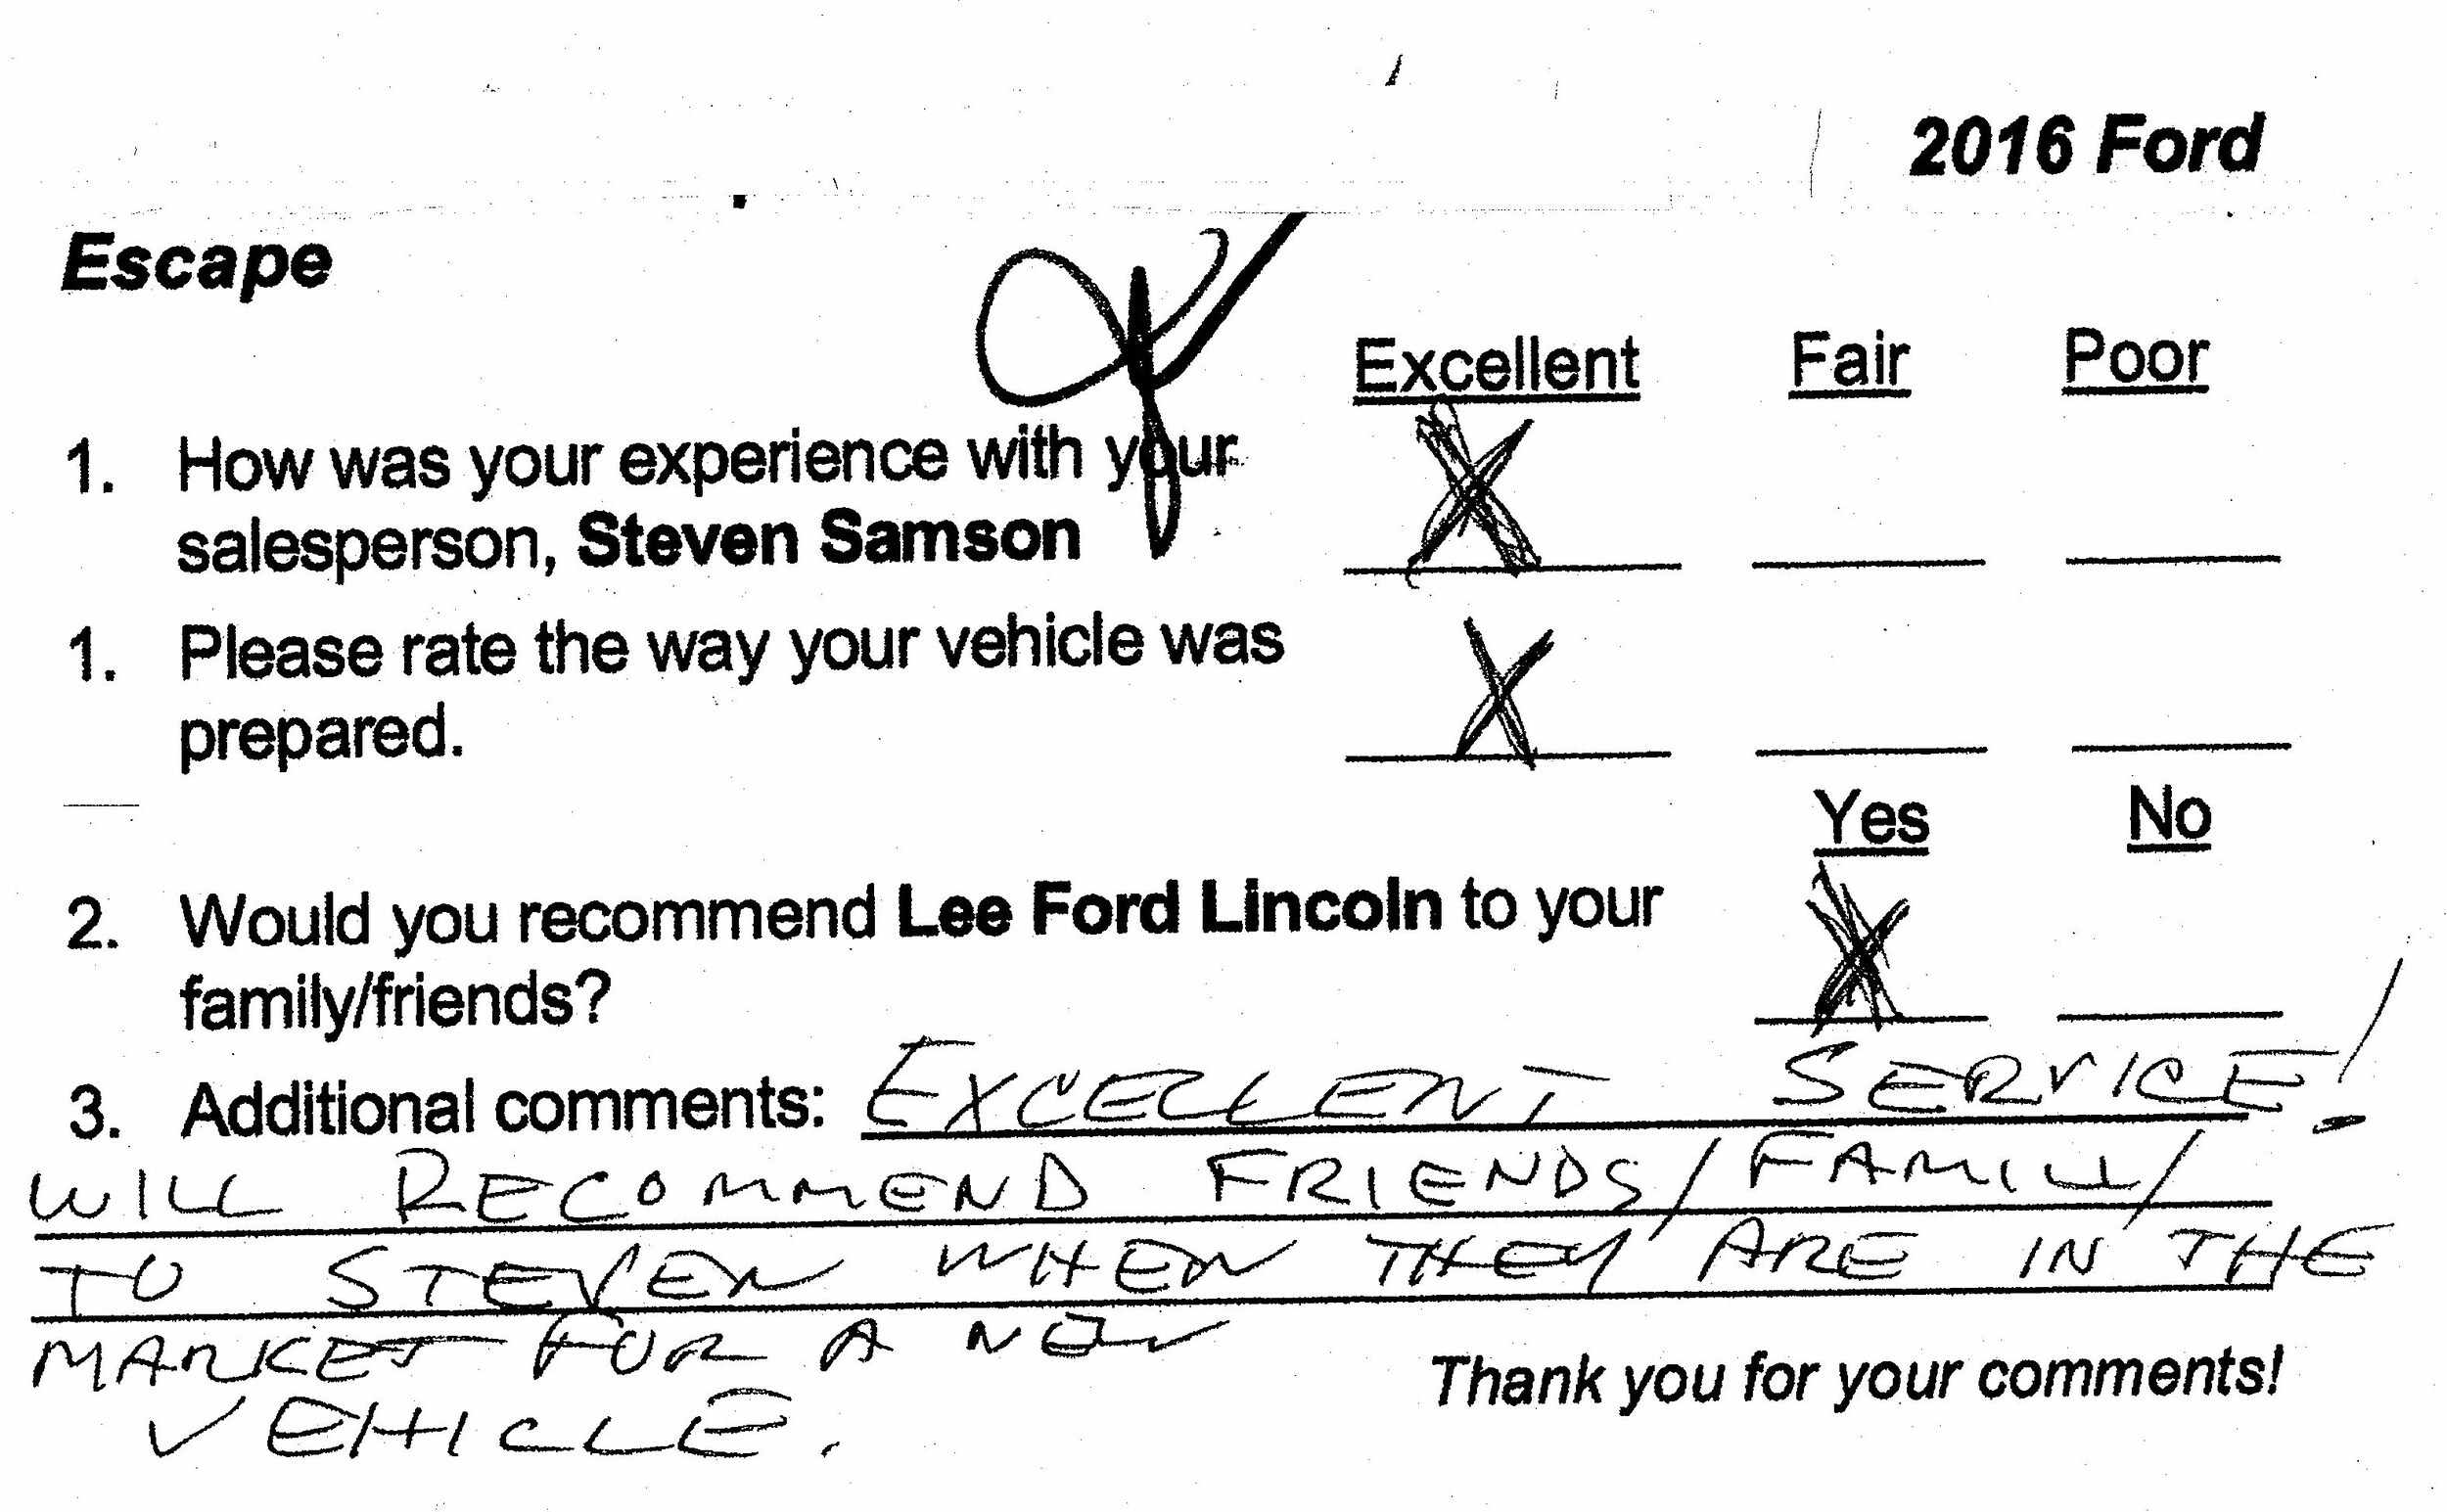 2016 Ford
Escape
Excellent Fair Poor
1. How was your experience with your
salesperson, Steven Samson X
1. Please rate the way your vehicle was
prepared. X
Yes No
2. Would you recommend Lee Ford Lincoln to your
family/friends? X
3. Additional comments: EXCELLENT SERVICE!
WILL RECOMMEND FRIENDS/FAMILY
TO STEVEN WHEN THEY ARE IN THE
MARKET FOR A NEW
VEHICLE.
Thank you for your comments!